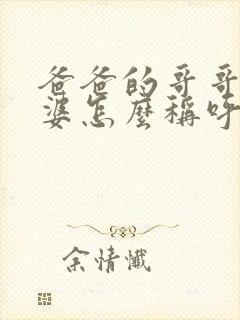 爸爸的哥哥
婆怎麼稱呼
余情懺